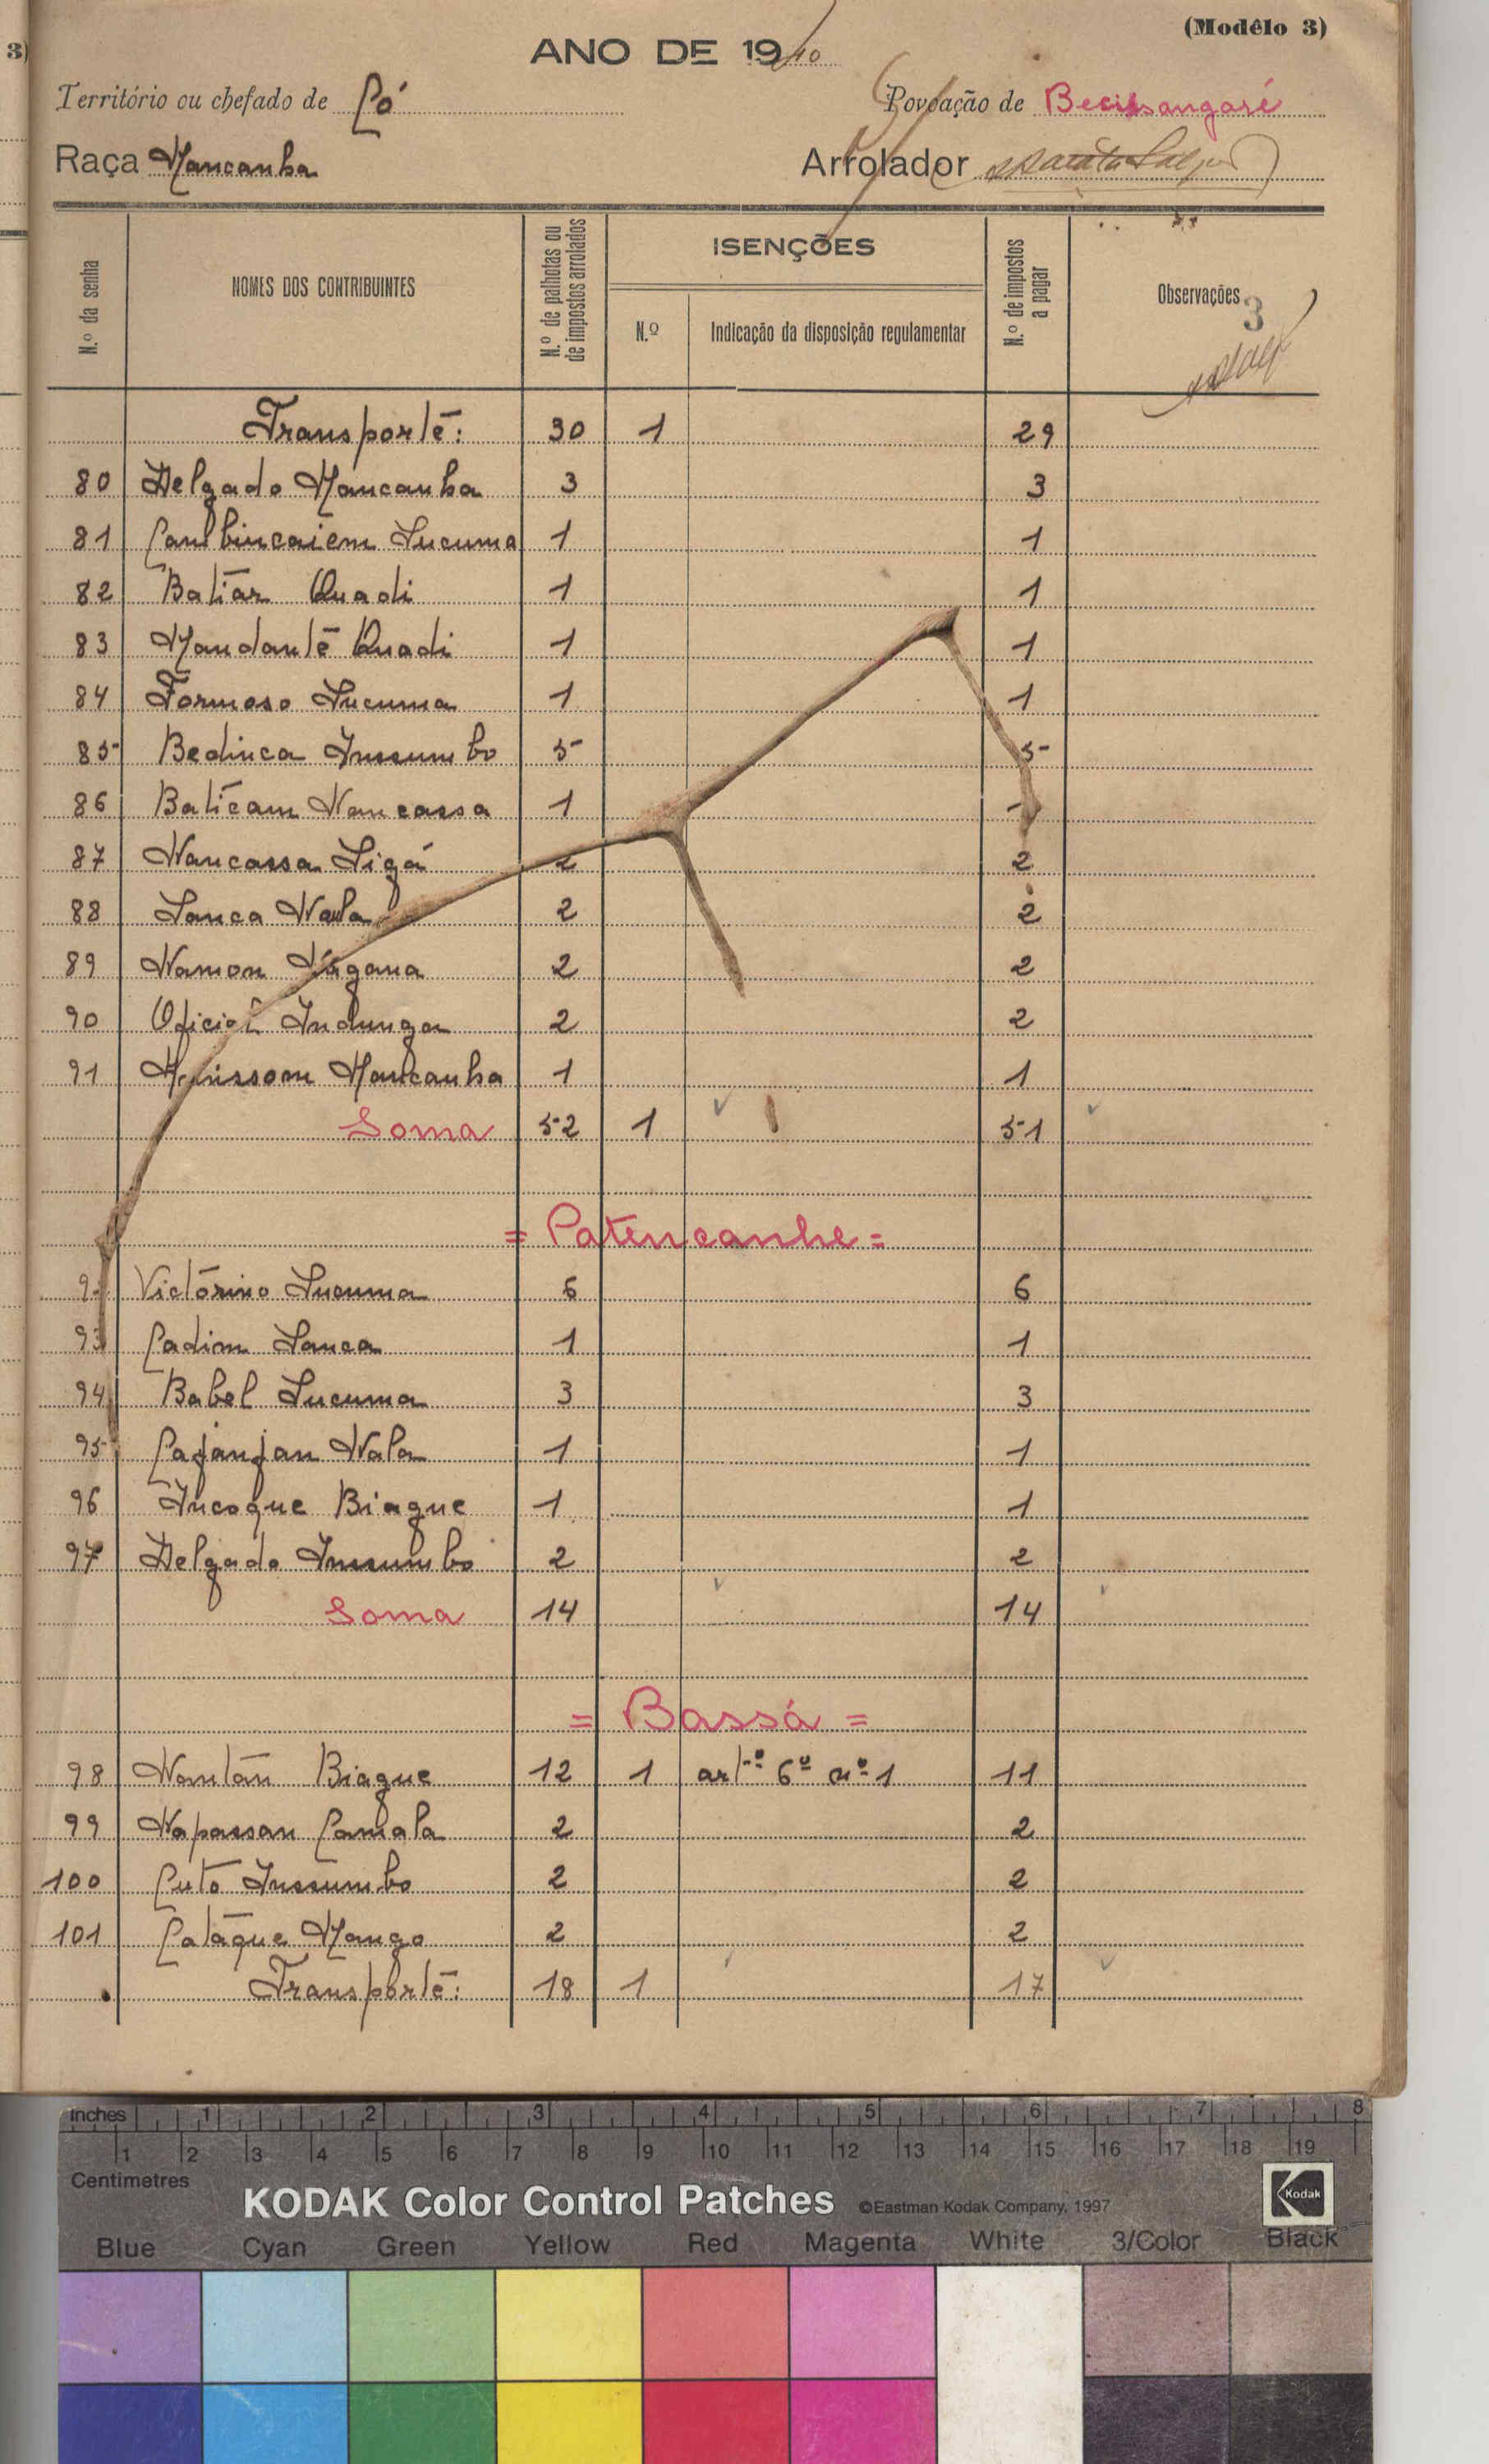 (Modêlo 3)
3)
ANO DE 1940
Território ou chefado de Có Povoação de
Raça Mancanha Arrolador
N.º da senha NOMES DOS CONTRIBUINTES N.º de palhotas ou de impostos arrolados ISENÇÕES N.º de impostos a pagar Observações 3
N.º Indicação da disposição regulamentar
Transporte: 30 1 29
80 Delgado Mancanha 3 3
81 Lucuma 1 1
82 Batiar Quadi 1 1
83 Mandante Quadi 1 1
84 Formoso Lucuma 1 1
85 Bedinca Inssumbo 5 5
86 Baticam Nancassa 1
87 Nancassa Ligá 2 2
88 Lanca Wala 2 2
89 Namon 2 2
90 Oficial Indunga 2 2
91 Mancanha 1 1
Soma 52 1 51
= Patencanhe =
Victorino Lucuma 6 6
93 Cadim Lanca 1 1
94 Babel Lucuma 3 3
95 Cajanjan Wala 1 1
96 Incoque Biague 1 1
97 Delgado Inssumbo 2 2
Soma 14 14
= Bassá =
98 Nantan Biague 12 1 artº 6º nº 1 11
99 Napassan Camala 2 2
100 Cuto Inssumbo 2 2
101 Cataque Mango 2 2
Transporte: 18 1 17
Inches 1 2 3 4 5 6 7 8
1 2 3 4 5 6 7 8 9 10 11 12 13 14 15 16 17 18 19
Centimetres
KODAK Color Control Patches ©Eastman Kodak Company, 1997 Kodak
Blue Cyan Green Yellow Red Magenta White 3/Color Black